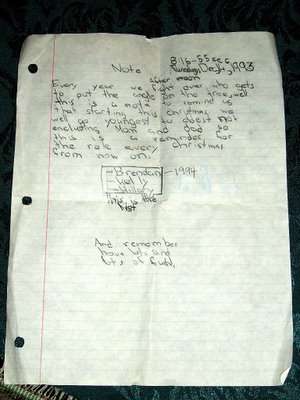 8:16-55sec
Note
Tuesday, Dec 14, 1993
after noon
Every year we fight over who gets
to put the angle on the tree, well
this is a note to remind us
that starting this christmas we
well go youngest to oldest not
encluding Mom and Dad so
this is a reminder for
the role every Christmas
from now on.
-Brendan-1994
-Kelly
-Hillary
This is the
list
And remember
have lots and
lots of fun!